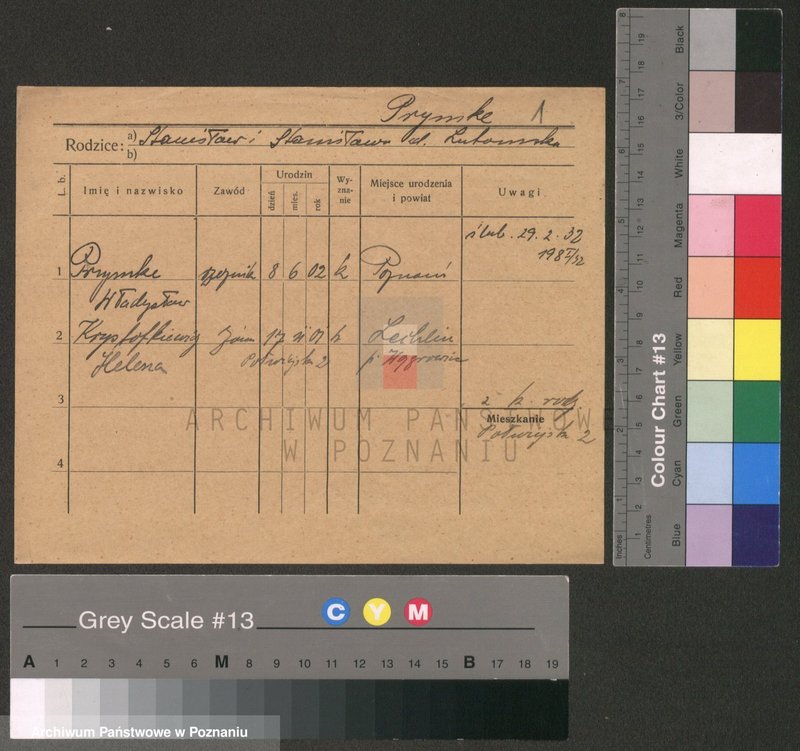 Prymke 1
Rodzice: a) Stanisław i Stanisława d. Lutomska
b)
L. b. Imię i nazwisko Zawód Urodzin dzień mies. rok Wyznanie Miejsce urodzenia i powiat Uwagi
ślub. 29. 2. 32
1 Prymke 8 6 02 k Poznań
Władysław
2 Krysztofkiewicz żona 17 Lechlin
Helena 2 p. Wągrowiec
3
Mieszkanie
2
4
ARCHIWUM PAŃSTWOWE
W POZNANIU
Inches 1 2 3 4 5 6 7 8
Centimetres 1 2 3 4 5 6 7 8 9 10 11 12 13 14 15 16 17 18 19
Colour Chart #13
Blue Cyan Green Yellow Red Magenta White 3/Color Black
Grey Scale #13 C Y M
A 1 2 3 4 5 6 M 8 9 10 11 12 13 14 15 B 17 18 19
Archiwum Państwowe w Poznaniu